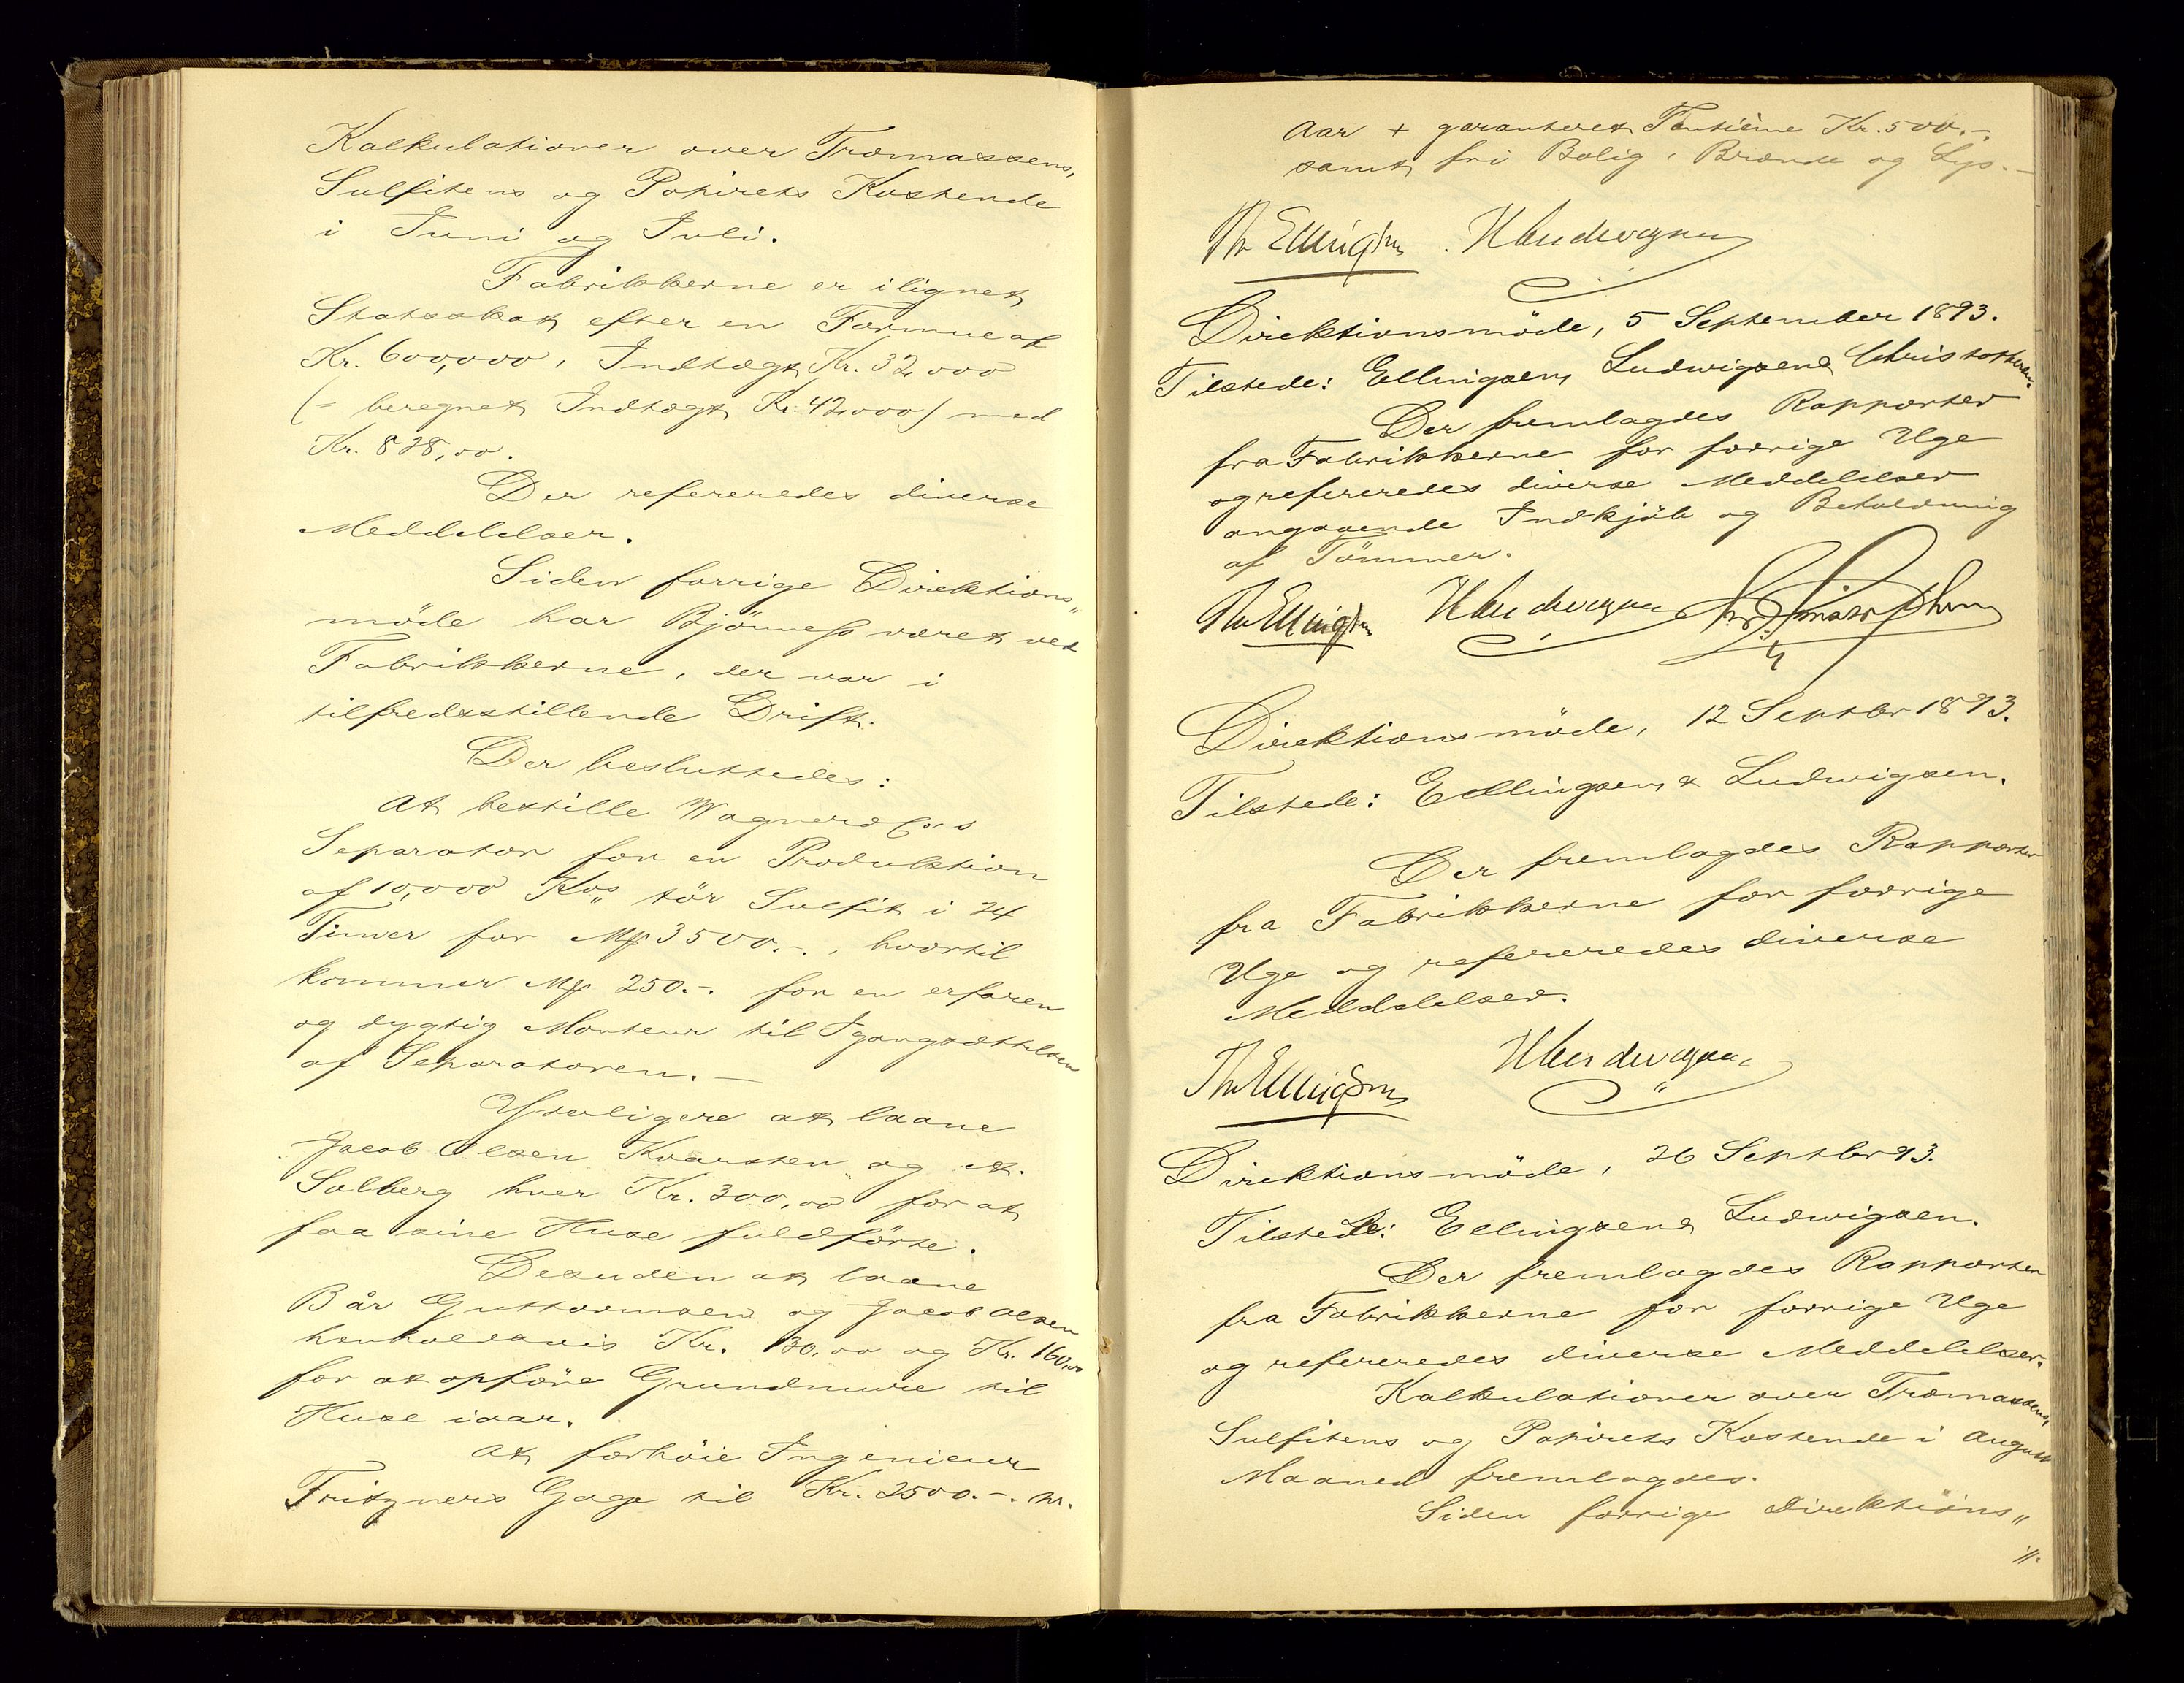 Kalkulationer over Træmassens,
Sulfitens og Papirets Kostende
i Juni og Juli.
Fabrikkerne er ilignet
Statsskat efter en Formue af
Kr. 600,000, Indtægt Kr. 32,000
(- beregnet Indtægt Kr. 42,000) med
Kr. 828,00.
Der refereredes diverse
Meddelelser.
Siden forrige Direktions„
möde har Bjönness været ved
Fabrikkerne, der var i
tilfredsstillende Drift.
Der besluttedes:
At bestille Wagner & Co's
Separator for en Produktion
af 10,000 Kos„ tör Sulfit i 24
Timer for Mk 3500.-, hvortil
kommer Mk 250.- for en erfaren
og dygtig Monteur til Igangsættelsen
af Separatoren.-
Yderligere at laane
Jacob Olsen Kvarsten og A.
Solberg hver Kr. 300,00 for at
faa sine Huse fuldförte.
Desuden at laane
Bår Guttormsen og Jacob Olsen
henholdsvis Kr. 130,00 og Kr. 160,00
for at opföre Grundmure til
Huse iaar.
At forhöie Ingeniör
Fritzners Gage til Kr. 2500.-. pr.
Aar + garanteret Tantième Kr. 500.-,
samt fri Bolig, Brænde og Lys.-
Th Ellingsen. H Ludwigsen
Direktionsmöde, 5 September 1893.
Tilstede: Ellingsen, Ludwigsen & Christophersen.
Der fremlagdes Rapporter
fra Fabrikkerne for forrige Uge
og refereredes diverse Meddelelser
angaaende Indkjöb og Beholdning
af Tömmer.
Th Ellingsen H Ludwigsen
Direktionsmöde, 12 Septbr 1893.
Tilstede: Ellingsen & Ludwigsen.
Der fremlagdes Rapporter
fra Fabrikkerne for forrige
Uge og refereredes diverse
Meddelelser.
Th Ellingsen H Ludwigsen
Direktionsmöde, 26 Septbr 93.
Tilstede: Ellingsen & Ludwigsen.
Der fremlagdes Rapporter
fra Fabrikkerne for forrige Uge
og refereredes diverse Meddelelser.
Kalkulationer over Træmassens,
Sulfitens og Papirets Kostende i August
Maaned fremlagdes.
Siden forrige Direktions„
·/.